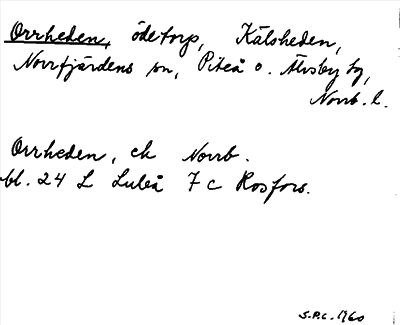 Orrheden, ödetorp, Kälsheden,
Norrfjärdens sn, Piteå o. Älvsby tg,
Norrb. l.
Orrheden, ek Norrb.
bl. 24 L Luleå 7 c Rosfors.
S.P.C. 1960